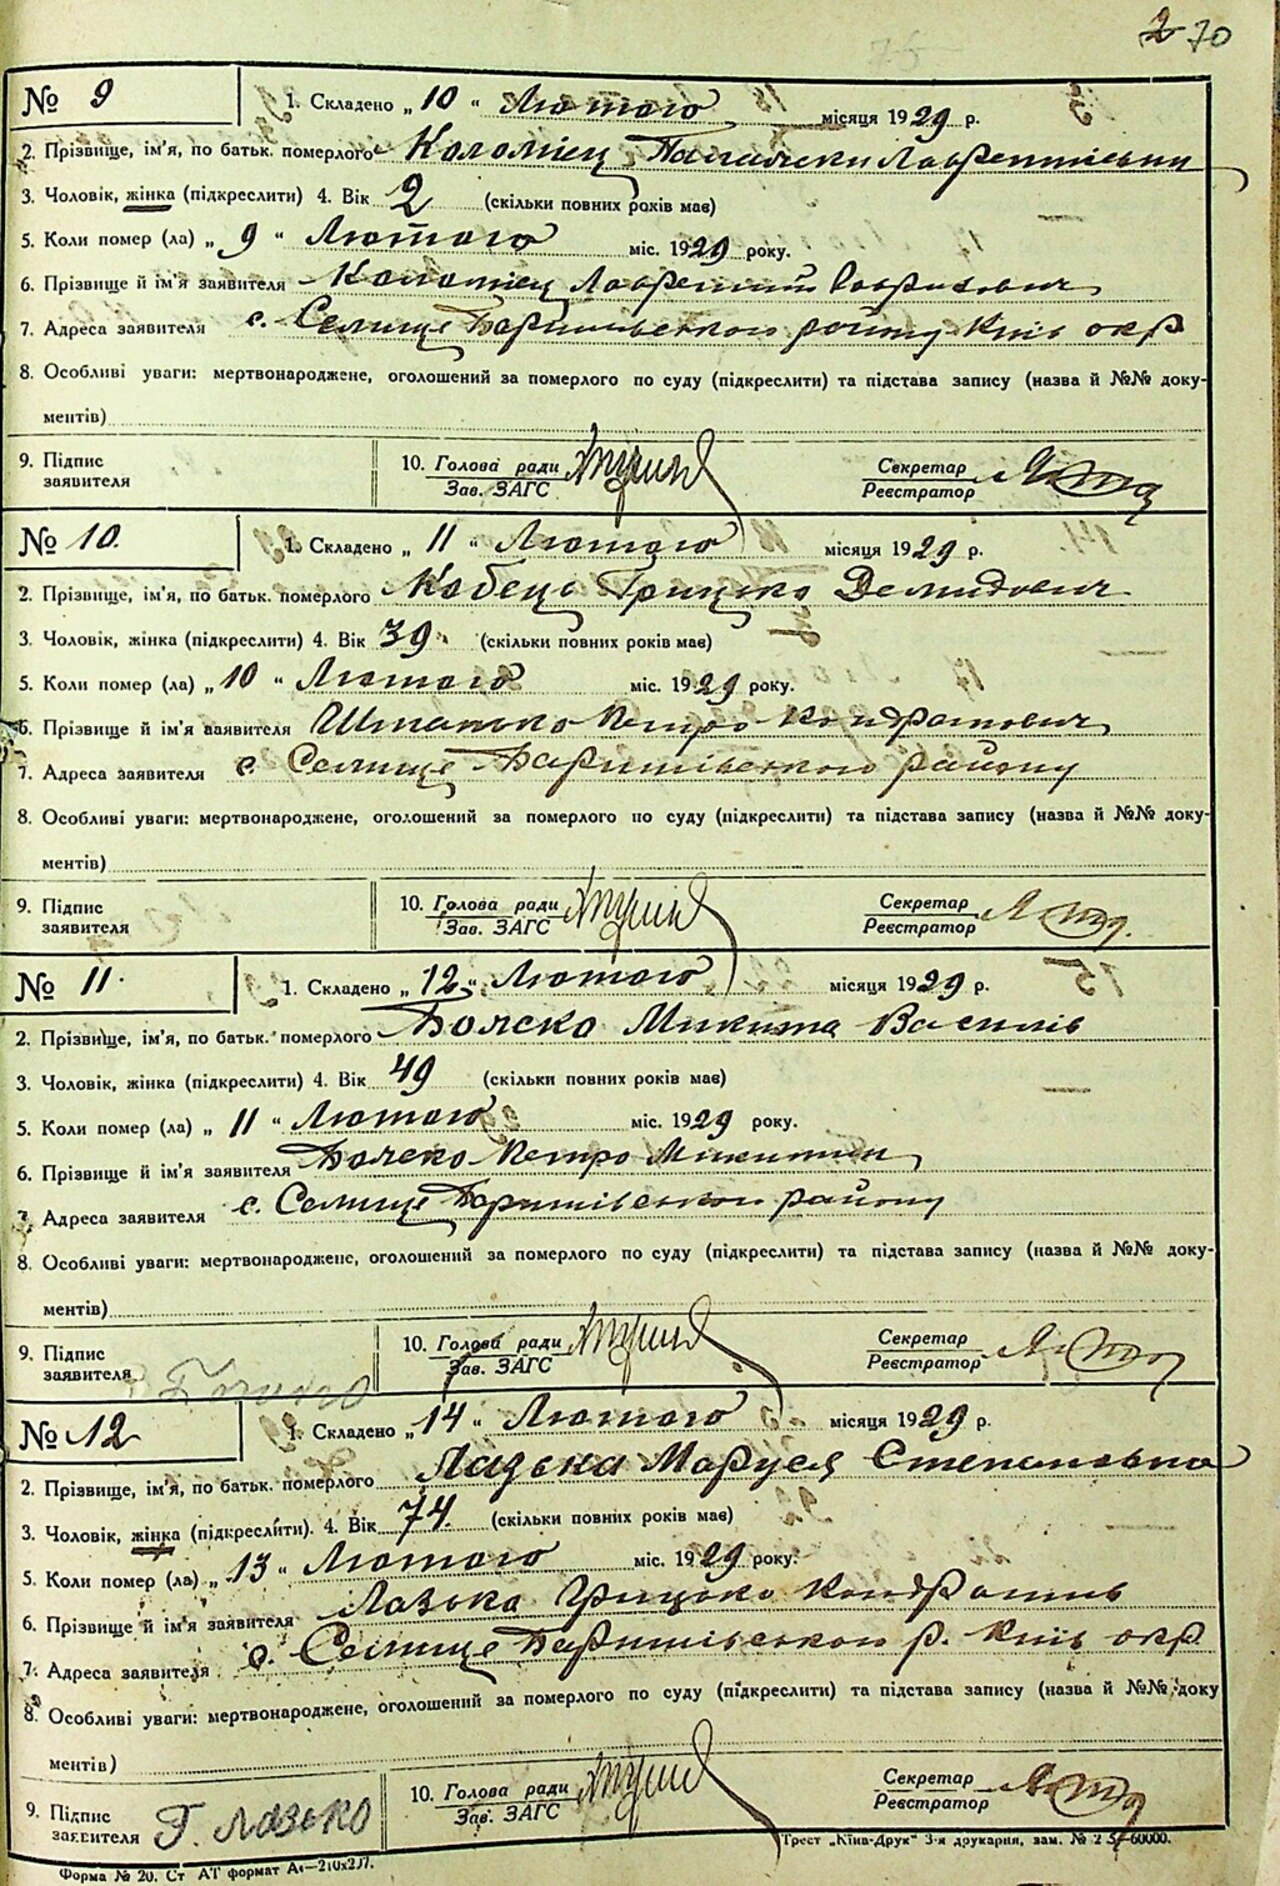 2 70
№ 9
1. Складено „ 10 “ Лютого місяця 1929 р.
2. Прізвище, ім'я, по батьк. померлого Коломієц Лаврентієвни
3. Чоловік, жінка (підкреслити) 4. Вік 2 (скільки повних рохів має)
5. Коли помер (ла) „ 9 “ Лютого міс. 1929 року.
6. Прізвище й ім'я заявителя Коломієц Лаврентий
7. Адреса заявителя с. Селище Баришівського району Київ окр
8. Особливі уваги: мертвонароджене, оголошений за померлого по суду (підкреслити) та підстава запису (назва й №№ доку-
ментів)
9. Підпис заявителя
10. Голова ради
Зав. ЗАГС
Секретар
Реєстратор
№ 10.
1. Складено „ 11 “ Лютого місяця 1929 р.
2. Прізвище, ім'я, по батьк. померлого Кобець Грицько Демидович
3. Чоловік, жінка (підкреслити) 4. Вік 39 (скільки повних років має)
5. Коли помер (ла) „ 10 “ Лютого міс. 1929 року.
6. Прізвище й ім'я заявителя Штанько Петро Кондратович
7. Адреса заявителя с. Селище Баришівського району
8. Особливі уваги: мертвонароджене, оголошений за померлого по суду (підкреслити) та підстава запису (назва й №№ доку-
ментів)
9. Підпис заявителя
10. Голова ради
Зав. ЗАГС
Секретар
Реєстратор
№ 11.
1. Складено „ 12 “ Лютого місяця 1929 р.
2. Прізвище, ім'я, по батьк. померлого Бояско Микита Василів
3. Чоловік, жінка (підкреслити) 4. Вік 49 (скільки повних років має)
5. Коли помер (ла) „ 11 “ Лютого міс. 1929 року.
6. Прізвище й ім'я заявителя Бояско Петро Микитин
7. Адреса заявителя с. Селище Баришівського району
8. Особливі уваги: мертвонароджене, оголошений за померлого по суду (підкреслити) та підстава запису (назва й №№ доку-
ментів)
9. Підпис заявителя
10. Голова ради
Зав. ЗАГС
Секретар
Реєстратор
№ 12
1. Складено „ 14 “ Лютого місяця 1929 р.
2. Прізвище, ім'я, по батьк. померлого Лазька Маруся Степановна
3. Чоловік, жінка (підкреслити). 4. Вік 74. (скільки повних років має)
5. Коли помер (ла) „ 13 “ Лютого міс. 1929 року.
6. Прізвище й ім'я заявителя Лазька Грицько Кондратів
7. Адреса заявителя с. Селище Баришівського р. Київ окр
8. Особливі уваги: мертвонароджене, оголошений за померлого по суду (підкреслити) та підстава запису (назва й №№ доку
ментів)
9. Підпис заявителя Г. Лазько
10. Голова ради
Зав. ЗАГС
Секретар
Реєстратор
Трест „Київ-Друк“ 3-я друкарня, зам. № 60000.
Форма № 20. Ст АТ формат А4—210х297.